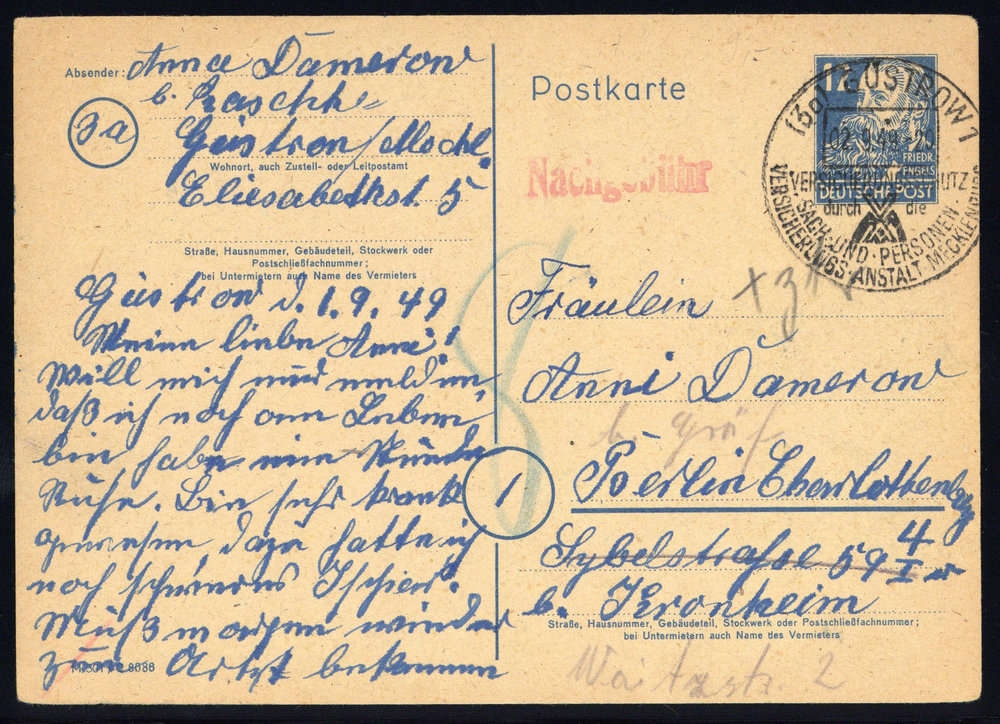 Absender: Anna Dameron
b. Raschke
3a
Güstrow/Meckl.
Wohnort, auch Zustell- oder Leitpostamt
Elisabethst. 5
Straße, Hausnummer, Gebäudeteil, Stockwerk oder
Postschließfachnummer;
bei Untermietern auch Name des Vermieters
Güstrow d. 1.9.49
Meine liebe Anni!
Will mich nur melden
daß ich noch am Leben
bin habe eine Stunde
Ruhe. Bin sehr krank
gewesen, dazu hatte ich
noch schweres Ischias.
Muß morgen wieder
zum Artzt bekomme
M 301 C 8088
Postkarte
12
FRIEDR.
ENGELS
DEUTSCHE POST
(3a) GÜSTROW 1
02.9.49.-20
VERSICHERUNGSSCHUTZ
durch die
SACH- UND PERSONEN-
VERSICHERUNGS-ANSTALT MECKLENBURG
Nachgebühr
8
Fräulein
Anni Dameron
b. Gräf
1
Berlin Charlottenburg
4
Sybelstraße 59 I
b. Kronheim
Straße, Hausnummer, Gebäudeteil, Stockwerk oder Postschließfachnummer;
bei Untermietern auch Name des Vermieters
Waitzstr. 2